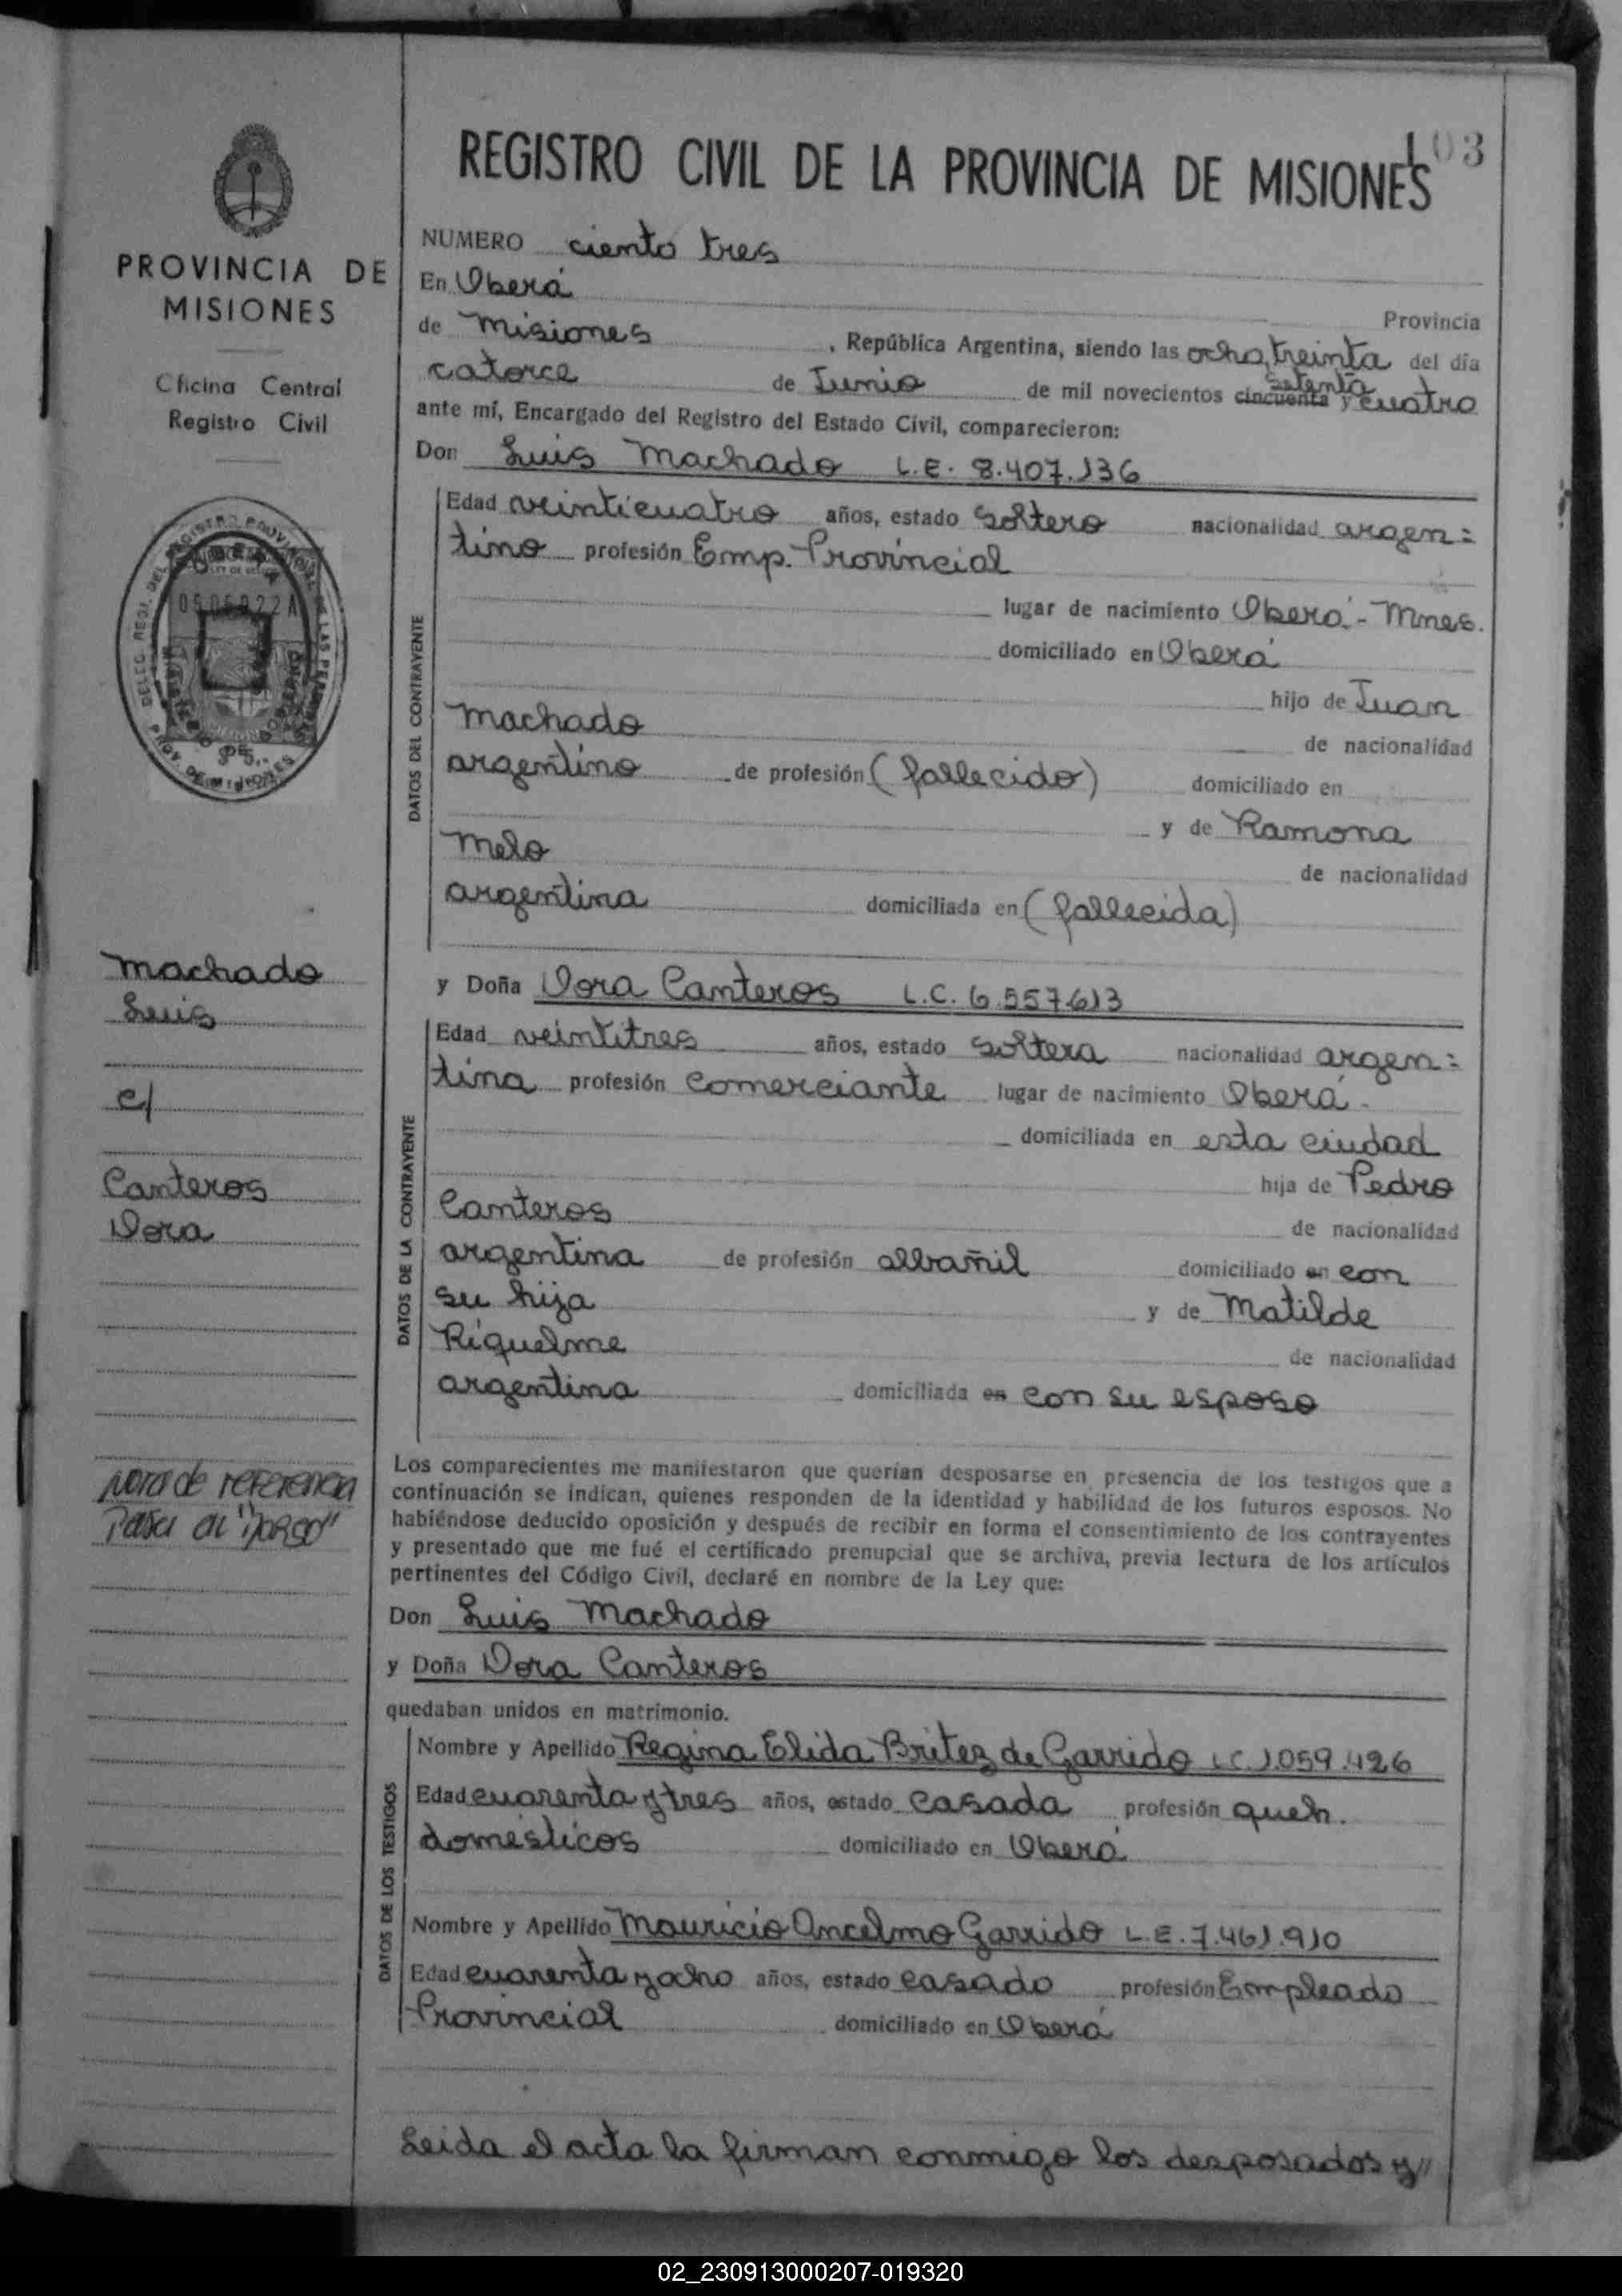 103
REGISTRO CIVIL DE LA PROVINCIA DE MISIONES
PROVINCIA DE
MISIONES
Oficina Central
Registro Civil
0505922A
Machado
Luis
c/
Canteros
Dora
Nota de referencia
Pasa al "Dorso"
NUMERO ciento tres
En Oberá Provincia
de Misiones, República Argentina, siendo las ocho, treinta del día
catorce de Junio de mil novecientos cincuenta setenta y cuatro
ante mí, Encargado del Registro del Estado Civil, comparecieron:
Don Luis Machado L.E. 8.407.136
DATOS DEL CONTRAYENTE
Edad veinticuatro años, estado soltero nacionalidad argen=
tino profesión Emp. Provincial
lugar de nacimiento Oberá - Mnes.
domiciliado en Oberá
hijo de Juan
Machado de nacionalidad
argentino de profesión (fallecido) domiciliado en
y de Ramona
Melo de nacionalidad
argentina domiciliada en (fallecida)
y Doña Dora Canteros L.C. 6.557.613
DATOS DE LA CONTRAYENTE
Edad veintitres años, estado soltera nacionalidad argen=
tina profesión comerciante lugar de nacimiento Oberá -
domiciliada en esta ciudad
hija de Pedro
Canteros de nacionalidad
argentina de profesión albañil domiciliado en con
su hija y de Matilde
Riquelme de nacionalidad
argentina domiciliada en con su esposo
Los comparecientes me manifestaron que querían desposarse en presencia de los testigos que a
continuación se indican, quienes responden de la identidad y habilidad de los futuros esposos. No
habiéndose deducido oposición y después de recibir en forma el consentimiento de los contrayentes
y presentado que me fué el certificado prenupcial que se archiva, previa lectura de los artículos
pertinentes del Código Civil, declaré en nombre de la Ley que:
Don Luis Machado
y Doña Dora Canteros
quedaban unidos en matrimonio.
DATOS DE LOS TESTIGOS
Nombre y Apellido Regina Elida Britez de Garrido L.C. 1.059.426
Edad cuarenta y tres años, estado casada profesión queh.
domésticos domiciliado en Oberá
Nombre y Apellido Mauricio Ancelmo Garrido L.E. 7.461.910
Edad cuarenta y ocho años, estado casado profesión Empleado
Provincial domiciliado en Oberá
Leida el acta la firman conmigo los desposados y//
02_230913000207-019320